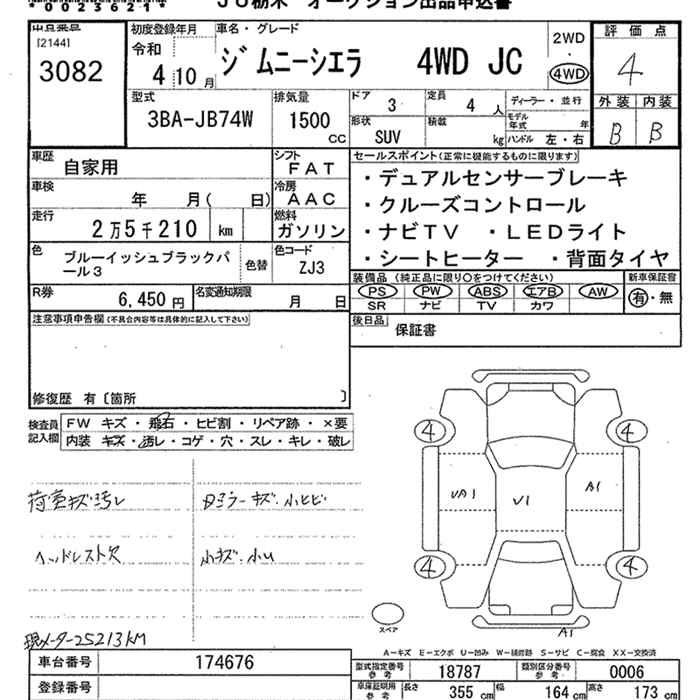 *00023621*
JU栃木 オークション出品申込書
出品番号
[2144]
3082
初度登録年月
令和
4年10月
車名・グレード
ジムニーシエラ 4WD JC
2WD
・
4WD
評価点
4
外装 内装
B B
型式
3BA-JB74W
排気量
1500
CC
ドア
3
定員
4人
ディーラー・並行
形状
SUV
積載
kg
モデル年式 年
ハンドル 左・右
車歴
自家用
シフト
FAT
車検
年 月( 日)
冷房
AAC
走行
2万5千210 km
燃料
ガソリン
色
ブルーイッシュブラックパール3
色替
色コード
ZJ3
R券
6,450円
名変通知期限
月 日
セールスポイント(正常に機能するものに限ります)
・デュアルセンサーブレーキ
・クルーズコントロール
・ナビTV ・LEDライト
・シートヒーター ・背面タイヤ
装備品(純正品に限り○をつけてください)
新車保証書
PS PW ABS エアB AW
有・無
SR ナビ TV カワ
後日品
保証書
注意事項申告欄(不具合内容等は具体的に記入して下さい)
修復歴 有〔箇所 〕
検査員
記入欄
FW キズ・飛石・ヒビ割・リペア跡・×要
内装 キズ・汚レ・コゲ・穴・スレ・キレ・破レ
荷室キズ汚レ
ミラーキズ.小ヒビ
ヘッドレスト欠
小キズ.小U
現メーター25213KM
4
4
UA1
U1
A1
4
4
スペア
A1
A―キズ E―エクボ U―凹み W―補修跡 S―サビ C―腐食 XX―交換済
車台番号
174676
登録番号
型式指定番号
参考
18787
類別区分番号
参考
0006
車庫証明用
参考
長さ
355 cm
幅
164 cm
高さ
173 cm